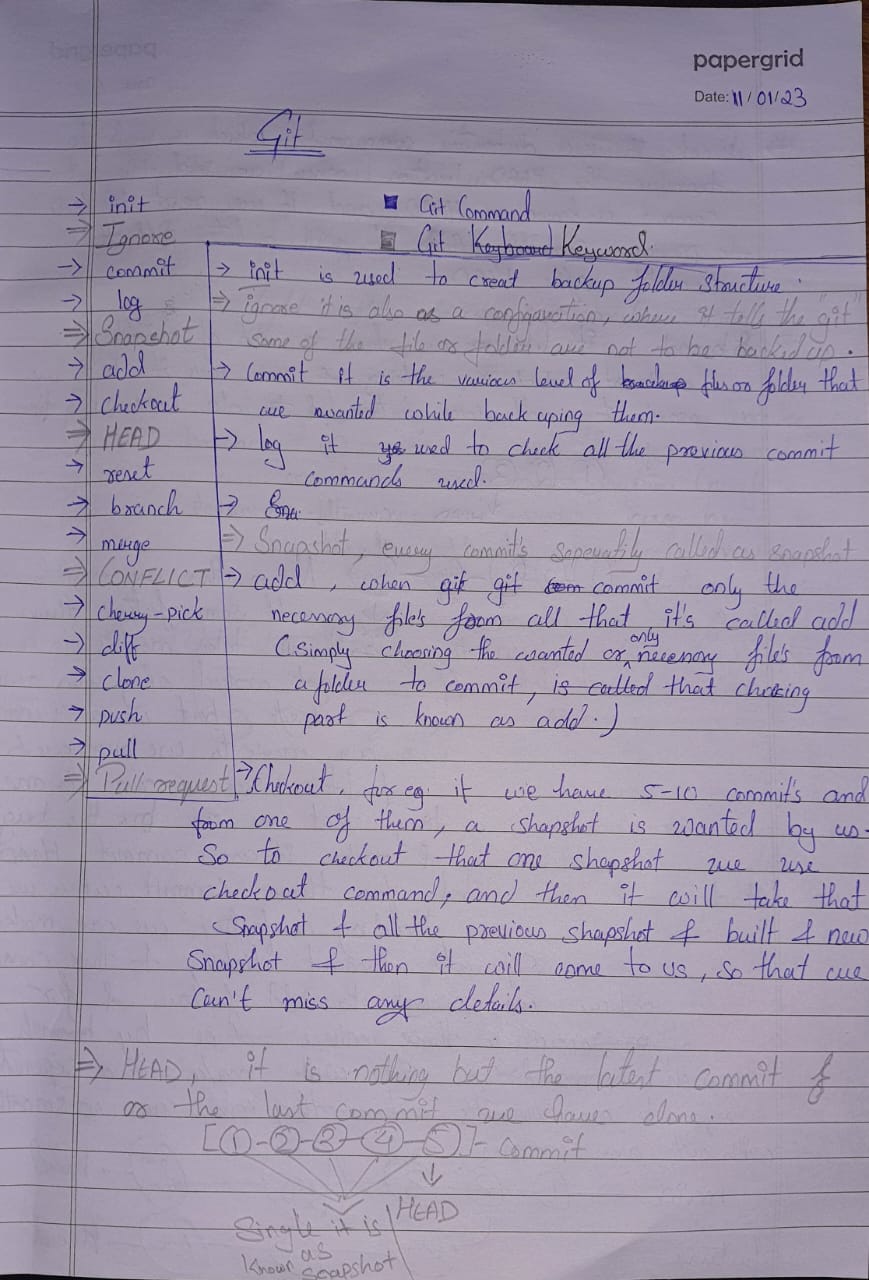 papergrid
Date: 11/01/23
Git
→ init
⇒ Ignore
→ commit
→ log
⇒ Snapshot
→ add
→ checkout
⇒ HEAD
→ reset
→ branch
→ merge
⇒ CONFLICT
→ cherry-pick
→ diff
→ clone
→ push
→ pull
⇒ Pull request
■ Git Command
■ Git Keyboard Keyword.
→ init is used to creat backup folder structure.
⇒ ignore it is also as a configauration, where it tells the "git"
some of the file or folder are not to be backed up.
→ Commit it is the various level of backup files or folder that
we wanted while back uping them.
→ log it used to check all the previous commit
commands used.
→ Sna.
⇒ Snapshot, every commit's seperatily called as snapshot
→ add, when git git com commit only the
necessory file's from all that, it's called add
(simply choosing the wanted or only necenory file's from
a folder to commit, is called that choosing
part is known as add.)
→ Checkout, for eg. if we have 5-10 commit's and
from one of them, a shapshot is wanted by us.
So to checkout that one shapshot we use
checkout command, and then it will take that
Snapshot & all the previous shapshot & built & new
Snapshot & then it will come to us, so that we
Can't miss any details.
⇒ HEAD, it is nothing but the latest commit &
or the last commit we have done.
[①-②-③-④-⑤]- Commit
HEAD
Single it is
known as
snapshot